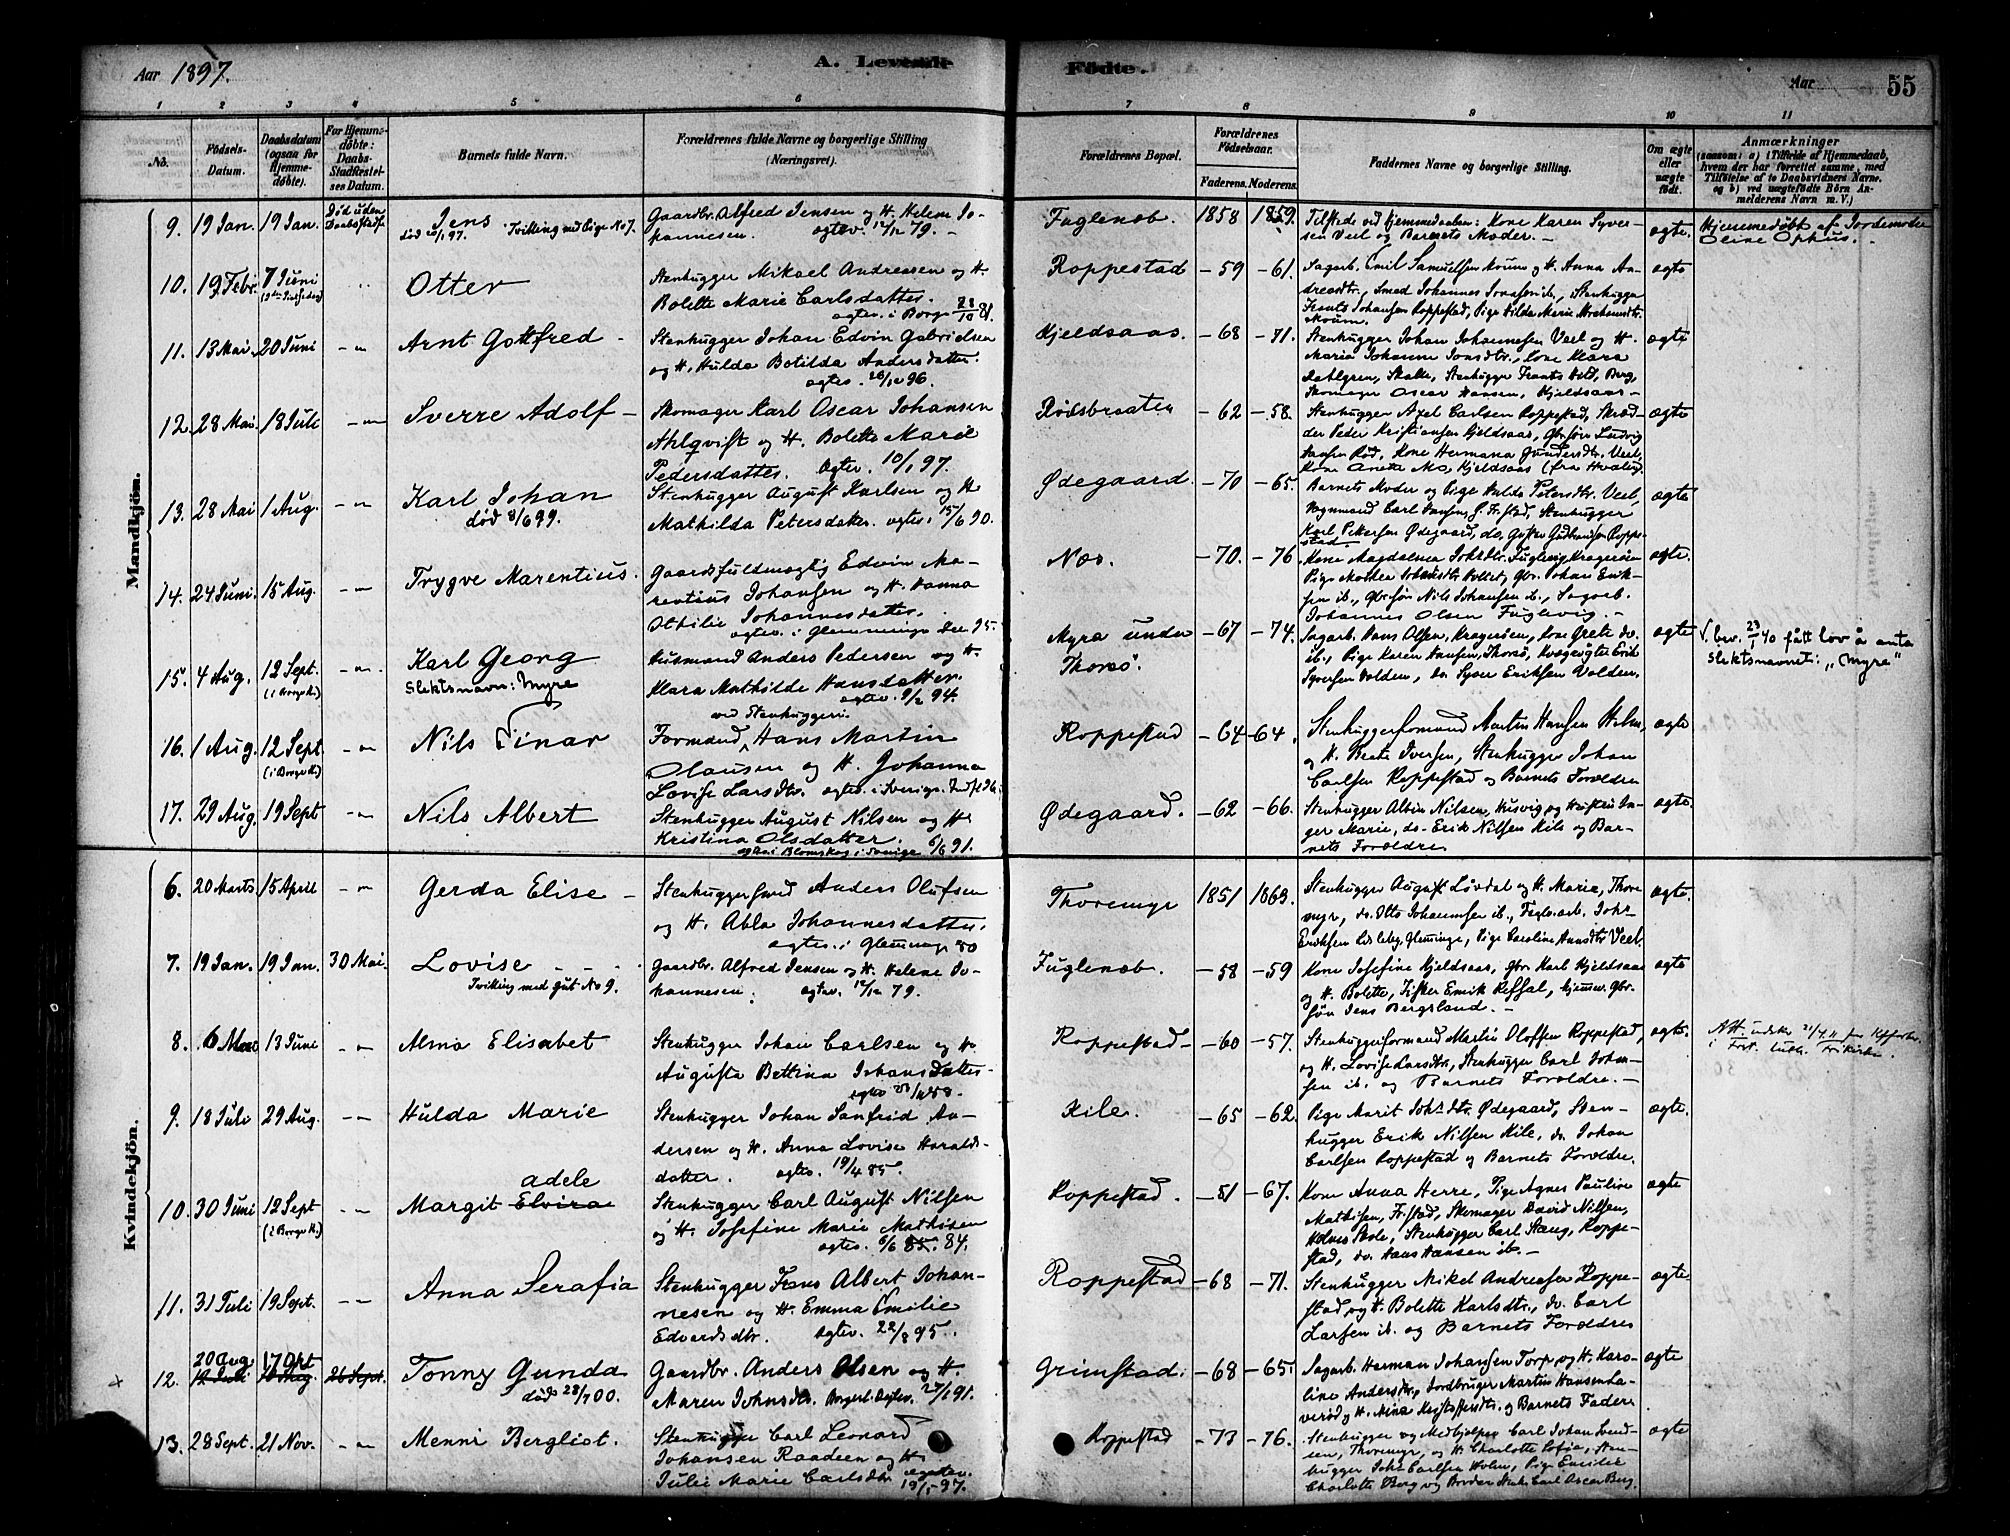 Aar 1897.
A. Levende
Fødte.
Aar
55
1 2 3 4 5 6 7 8 9 10 11
No.
Fødsels-Datum.
Daabsdatum (ogsaa for Hjemmedøbte).
For Hjemmedøbte: Daabs-Stadfæstelses Datum.
Barnets fulde Navn.
Forældrenes fulde Navne og borgerlige Stilling (Næringsvei).
Forældrenes Bopæl.
Forældrenes Fødselsaar.
Faderens. Moderens.
Faddernes Navne og borgerlige Stilling.
Om ægte eller uægte født.
Anmærkninger
(saasom: a) i Tilfælde af Hjemmedaab, hvem der har forrettet samme, med Tilføielse af to Daabsvidners Navne, og b) ved uægtefødte Børn Anmelderens Navn m. V.)
Mandkjøn.
9. 19 Jan. 19 Jan. Død uden Daabsstadf.
Jens
Tvilling med Pige No 7.
Gaardbr. Alfred Jensen og H. Helene Jo-
hannesen. ægtev. 12/12 79.
Fuglenæb. 1858 1859.
Tilstede ved Hjemmedaaben: Kone Karen Syver-
sen Veel og Barnets Moder.
ægte.
Hjemmedøbt af Jordemoder
Oline Ophus.
10. 19 Febr. 7 Juni
Otter
Stenhugger Mikael Andreasen og H.
Bolette Marie Carlsdatter.
ægtev. i Borge 23/10 81.
Roppestad -59 -61.
ægte
11. 13 Mai 20 Juni
Arnt Gottfred
Stenhugger Johan Edvin Gabrielsen
og H. Hulda Botilda Andersdatter.
ægtev. 26/12 96.
Kjeldsaas. -68 -71.
Stenhugger Johan Johannesen Veel og H.
Maria Johanne Jonsdtr., Kone Klara
Dahlgren, Skalle, Stenhugger Frants Hild, Berg,
Skomager Oscar Hansen, Kjeldsaas
ægte
12. 28 Mai. 18 Juli
Sverre Adolf
Skomager Karl Oscar Johansen
Ahlqvist og H. Bolette Marie
Pedersdatter. ægtev. 10/1 97.
Rødsbraaten -62 -58.
Stenhugger Axel Carlsen Roppestad, Skræd-
der Peder Kristiansen Kjeldsaas, Gbr.søn Ludvig
Hansen Rød, Kone Hermana Gundersdtr. Veel,
Kone Aneta Mo, Kjeldsaas (fra Hvaler)
ægte
13. 28 Mai 1 Aug.
Karl Johan
død 8/6 99.
Stenhugger August Karlsen og H.
Mathilda Petersdatter. ægtev. 15/6 90.
Ødegaard. -70 -65.
Barnets Moder og Pige Hulda Petersdtr. Veel
Vognmand Carl Hansen, G. Fr.stad, Stenhugger
Karl Pettersen Ødegaard, do. Gustav Gudbransen Roppe-
stad
ægte
14. 24 Juni. 15 Aug.
Trygve Marentius.
Gaardsfuldmægtig Edvin Ma-
rentius Johansen og H. Hanna
Othilie Johannesdatter.
ægtev. i Glemminge Dec 95.
Næs. -70. -76
Kone Magdalena Johsdtr. Fuglevig, Kragerøen
Pige Mathea Johansdtr. Voltet, Gbr. Johan Erik-
sen ib., Gbr.søn Nils Johansen ib., Sagarb.
Johannes Olsen Fuglevig.
ægte.
15. 4 Aug. 12 Sept. (i Borge K.)
Karl Georg
Slektsnavn: Myre
Husmand Anders Pedersen og H.
Klara Mathilde Hansdatter.
ægtev. 9/2 94.
Myra under
Thorsø. -67 -74.
Sagarb. Hans Olsen, Kragerøen, Kone Grete do.
ib., Pige Karen Hansen, Thorsø, Kvægrøgter Erik
Syversen Volden, do. Syver Eriksen Volden.
ægte
bev. 23/1 40 fått lov å anta
slektsnavnet: „Myre"
16. 1 Aug. 12 Sept. (i Borge K.)
Nils Einar
ved Stenhuggeri
Formand, Hans Martin
Olausen og H. Johanna
Lovise Larsdtr.
Roppestad -64 -64.
Stenhuggerformand Martin Hansen Holm,
og H. Beate Iversen, Stenhugger Johan
Carlsen Roppestad og Barnets Forældre
ægte
17. 29 Aug. 19 Sept
Nils Albert
Stenhugger August Nilsen og H.
Kristina Olsdatter.
ægtev. i Blomskog i Sverige 6/6 91.
Ødegaard. -62 -66.
Stenhugger Albin Nilsen, Husvig, og Hustru In-
ger Marie, do. Erik Nilsen Kile og Bar-
nets Forældre
ægte.
Kvindekjøn.
6. 20 Marts 15 April
Gerda Elise
Stenhuggerformd Anders Olufsen
og H. Abla Johannesdatter.
ægtev. i Glemminge 80
Thoremyr 1851 1863.
Stenhugger August Løvdal og H. Marie, Thore
myr, do. Otto Johannesen ib., Fabr.arb. Johs
Eriksen Lisleby, Glemminge, Pige Caroline Hansdtr Veel
ægte.
7. 19 Jan. 19 Jan. 30 Mai.
Lovise
Tvilling med Gut No 9.
Gaardbr. Alfred Jensen og H. Helene Jo-
hannesen. ægtev. 12/12 79.
Fuglenæb. -58 -59
Kone Josefine Kjeldsaas, Gbr. Karl Kjeldsaas
og H. Bolette, Fisker Emik Refsal, Hjemmev. Gbr.
søn Jens Bergsland.
ægte
8. 6 Mai 13 Juni
Alma Elisabet
Stenhugger Johan Carlsen og H.
Augusta Bettina Johansdatter.
Roppestad -60 -57.
Stenhuggerformand Martin Oloffsen Roppestad,
og H. Lovise Larsdtr, Stenhugger Carl Johan-
sen ib. og Barnets Forældre.
ægte.
9. 18 Juli 29 Aug.
Hulda Marie
Stenhugger Johan Sanfrid An-
dersen og H. Anna Lovise Haralds-
datter. ægtev. 19/4 85.
Kile. -65 -62.
Pige Marit Johsdtr. Ødegaard, Sten-
hugger Erik Nilsen Kile, do. Johan
Carlsen Roppestad og Barnets Forældre.
ægte.
10. 30 Juni 12 Sept (i Borge K.)
adele
Margit Elvira
Stenhugger Carl August Nilsen
og H. Josefine Marie Mathisen
ægtev. 6/6 85. 84.
Roppestad. -61 -67.
Kone Anna Herre, Pige Agnes Pauline
Mathisen, Fr.stad, Skomager David Nilsen,
Holmeskole, Stenhugger Carl Stang, Roppe-
stad, do. Hans Hansen ib.
ægte
11. 31 Juli 19 Sept.
Anna Serafia
Stenhugger Frans Albert Johan-
nesen og H. Emma Emilie
Edvardsdtr. ægtev. 22/8 95.
Roppestad -68 -71.
Stenhugger Mikel Andreasen Roppe-
stad, og H. Bolette Karlsdtr., do. Carl
Larsen ib. og Barnets Forældre
ægte
12. 20 Aug. 17 Okt 26 Sept.
Tonny Gunda
død 28/7 00.
Gaardbr. Anders Olsen og H.
Maren Johnsdtr.
Grimstad. -68 -65.
Sagarb. Herman Johansen Torp og H. Karo-
line Andersdtr, Jordbruger Martin Hansen La-
verød og H. Mina Kristoffersdtr. og Barnets Fader
ægte
13. 28 Sept. 21 Nov.
Menni Bergliot.
Stenhugger Carl Leonard
Johansen Raadeen og H.
Julie Marie Carlsdtr. ægtev.
Roppestad -73 -76.
Stenhugger og Medhjælper Carl Johan Svend-
sen, Thoremyr, og H. Charlotte Sofia, Sten-
hugger Johs Carlsen Holm, Pige Emilie
Charlotte Borg og Broder Stenh. Carl Oscar Berg.
ægte